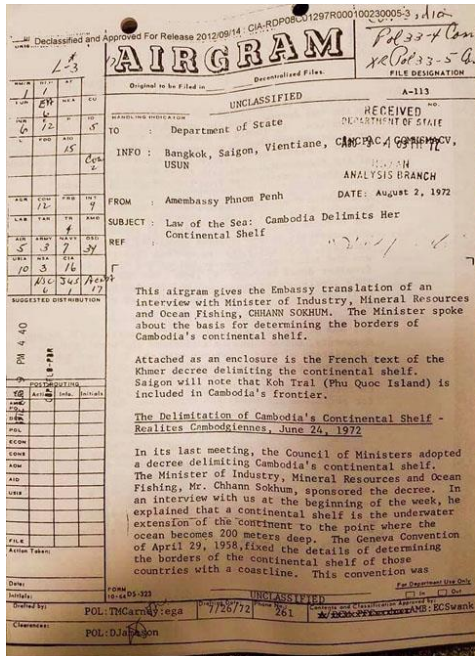 Declassified and Approved For Release 2012/09/14 : CIA-RDP08C01297R000100230005-3
AIRGRAM
Pol 33-4 Cam
XR Pol 33-5
FILE DESIGNATION
Original to be Filed in Decentralized Files.
UNCLASSIFIED
A-113
NO.
HANDLING INDICATOR
RECEIVED
DEPARTMENT OF STATE
TO : Department of State
INFO : Bangkok, Saigon, Vientiane, CINCPAC, COMUSMACV,
USUN
ANALYSIS BRANCH
FROM : Amembassy Phnom Penh
DATE: August 2, 1972
SUBJECT : Law of the Sea: Cambodia Delimits Her
Continental Shelf
REF :
SUGGESTED DISTRIBUTION
This airgram gives the Embassy translation of an
interview with Minister of Industry, Mineral Resources
and Ocean Fishing, CHHANN SOKHUM. The Minister spoke
about the basis for determining the borders of
Cambodia's continental shelf.
Attached as an enclosure is the French text of the
Khmer decree delimiting the continental shelf.
Saigon will note that Koh Tral (Phu Quoc Island) is
included in Cambodia's frontier.
The Delimitation of Cambodia's Continental Shelf -
Realites Cambodgiennes, June 24, 1972
In its last meeting, the Council of Ministers adopted
a decree delimiting Cambodia's continental shelf.
The Minister of Industry, Mineral Resources and Ocean
Fishing, Mr. Chhann Sokhum, sponsored the decree. In
an interview with us at the beginning of the week, he
explained that a continental shelf is the underwater
extension of the continent to the point where the
ocean becomes 200 meters deep. The Geneva Convention
of April 29, 1958, fixed the details of determining
the borders of the continental shelf of those
countries with a coastline. This convention was
PM 4 40
POST ROUTING
TO: Action Info. Initials
POL
ECON
CONS
ADM
AID
USIS
FILE
Action Taken:
Date:
Initials:
FORM
DS-323
UNCLASSIFIED
For Department Use Only
In Out
Drafted by:
POL:TMCarney:ega
Drafting Date:
7/26/72
Phone No.:
261
Contents and Classification Approved by:
AMB: ECSwank
Clearances: